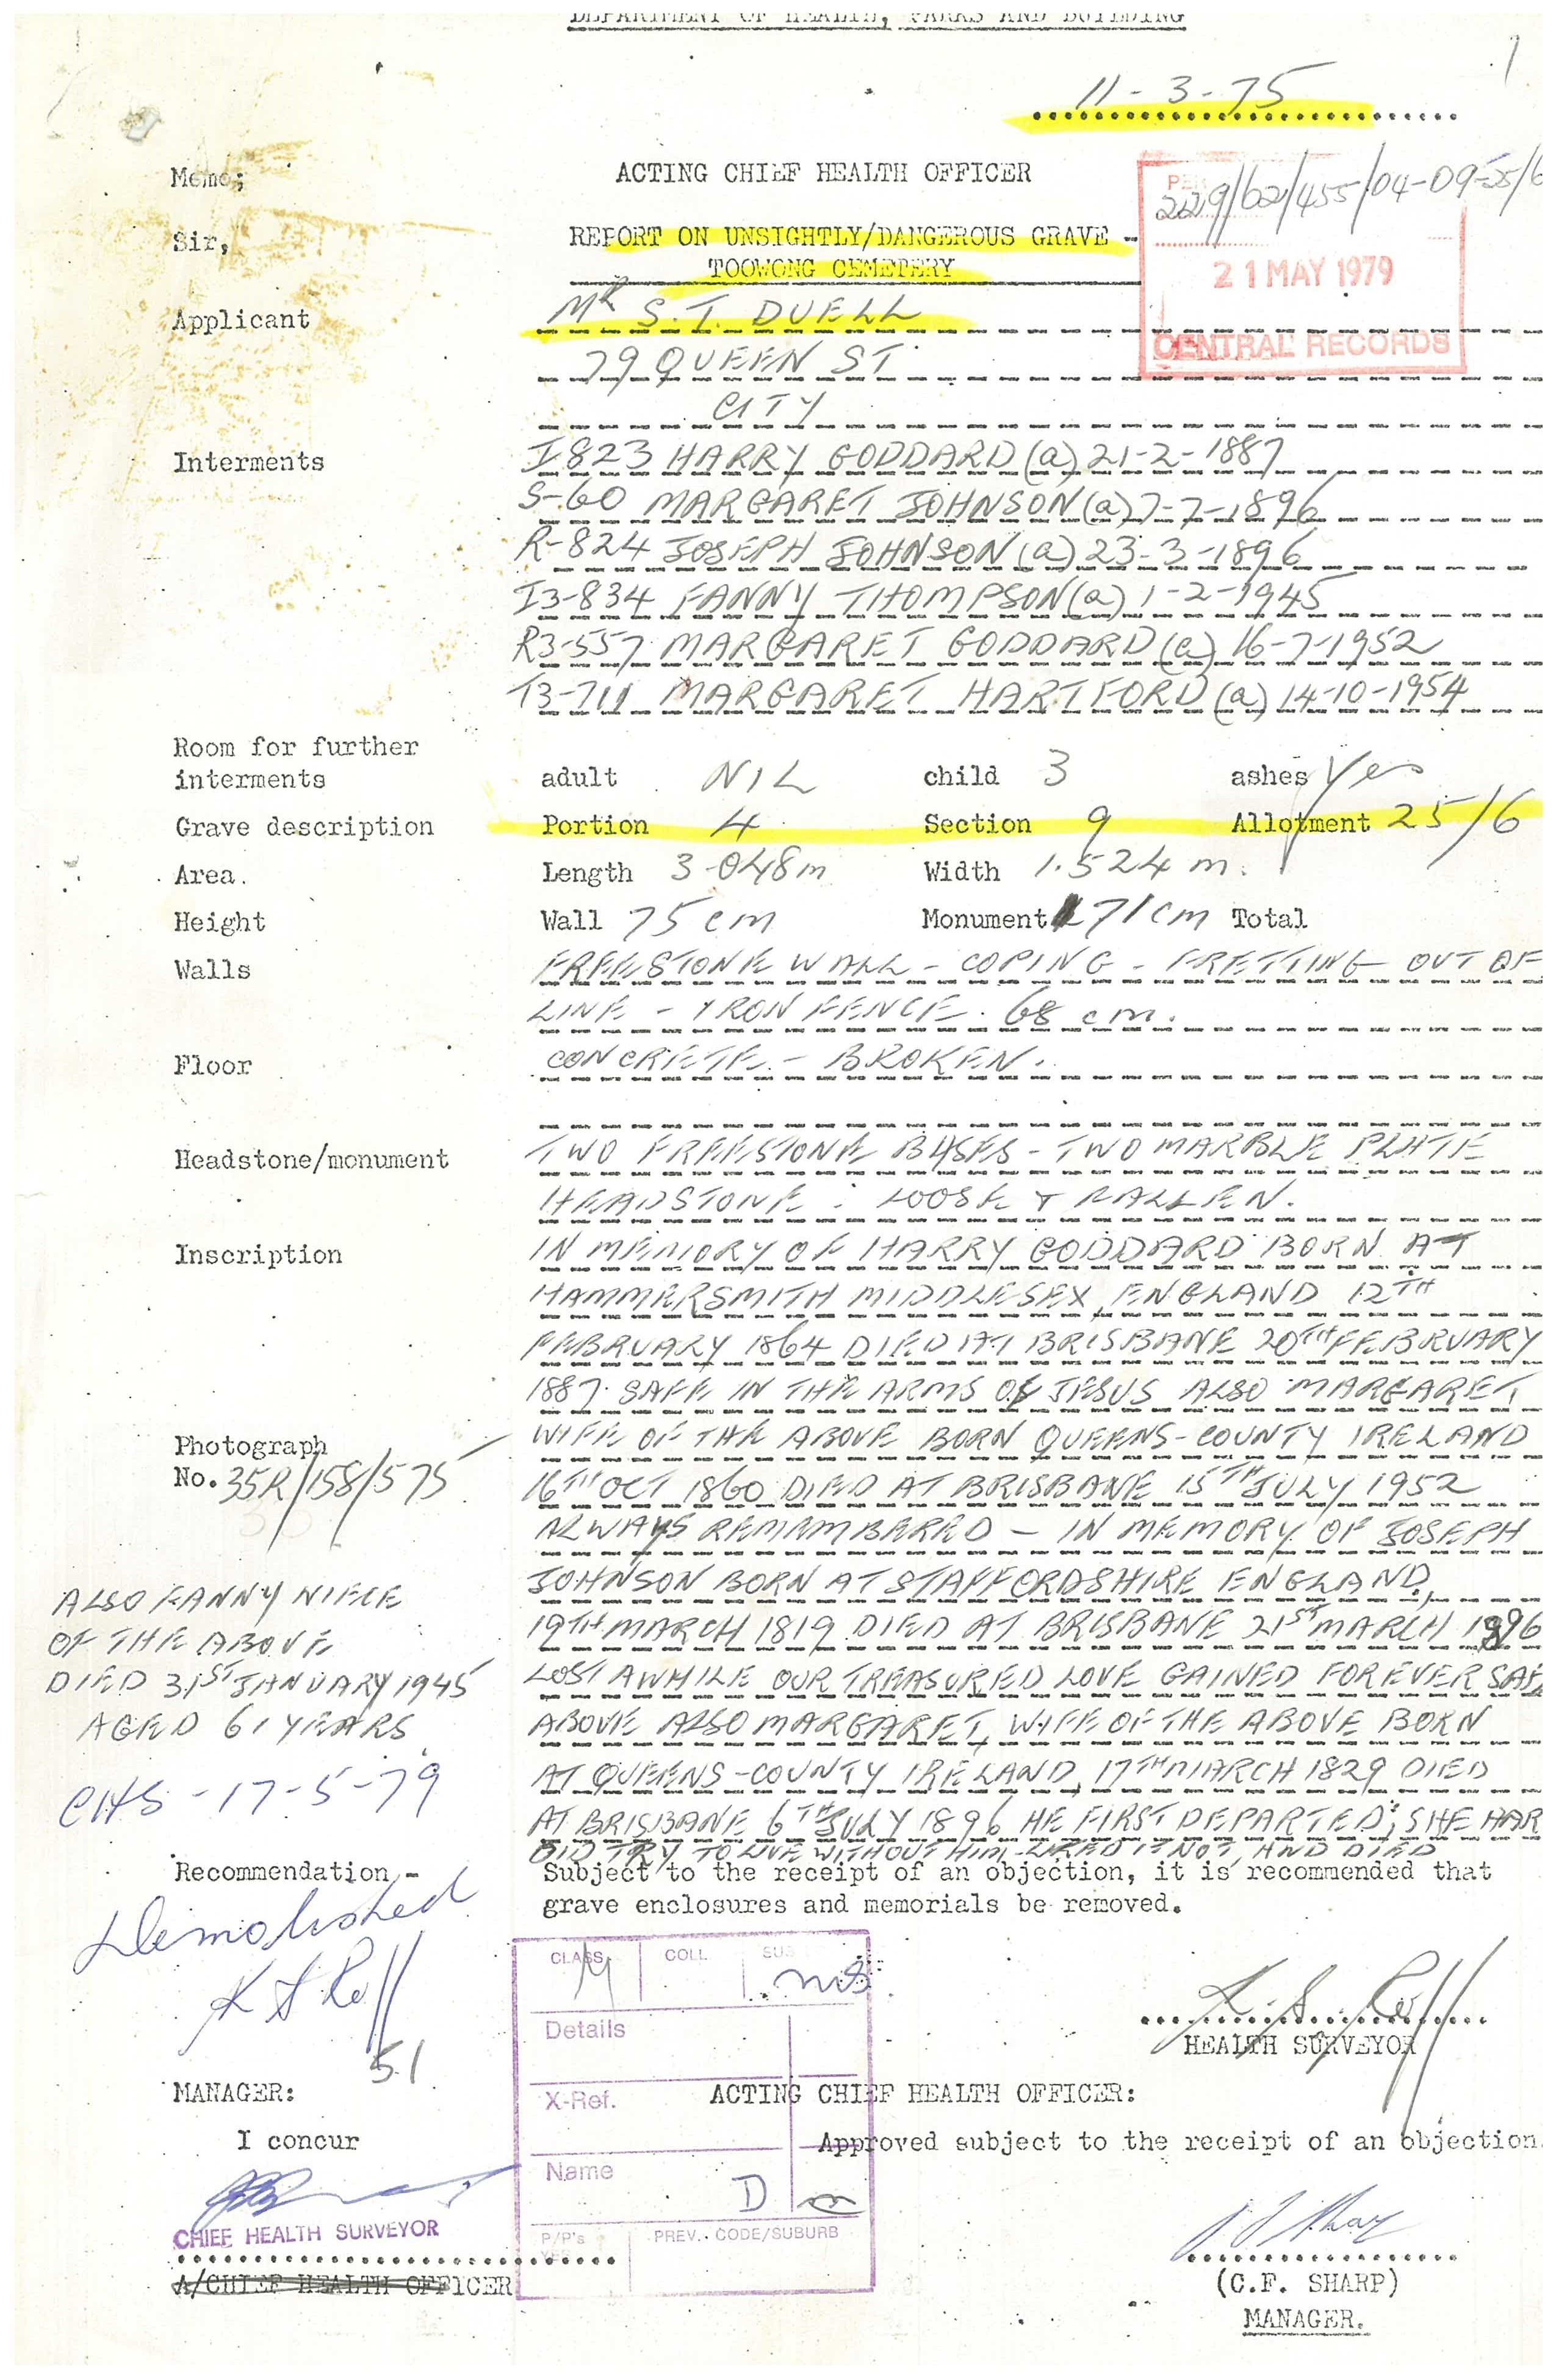 DEPARTMENT OF HEALTH, PARKS AND BUILDING
1
11-3-75
Memo; ACTING CHIEF HEALTH OFFICER
229/62/455/04-09-25/6
Sir, REPORT ON UNSIGHTLY/DANGEROUS GRAVE -
TOOWONG CEMETERY
21 MAY 1979
CENTRAL RECORDS
Applicant MR S.T. DUELL
79 QUEEN ST
CITY
Interments I823 HARRY GODDARD (a) 21-2-1887
S-60 MARGARET JOHNSON (a) 7-7-1896
R-824 JOSEPH JOHNSON (a) 23-3-1896
I3-834 FANNY THOMPSON (a) 1-2-1945
R3-557 MARGARET GODDARD (a) 16-7-1952
T3-711 MARGARET HARTFORD (a) 14-10-1954
Room for further
interments adult NIL child 3 ashes Yes
Grave description Portion 4 Section 9 Allotment 25/6
Area. Length 3.048m Width 1.524 m.
Height Wall 75 cm Monument 71cm Total
Walls FREESTONE WALL - COPING - FRETTING OUT OF
LINE - IRON FENCE. 68 cm.
Floor CONCRETE - BROKEN.
Headstone/monument TWO FREESTONE BASES - TWO MARBLE PLATE
HEADSTONE: LOOSE & FALLEN.
Inscription IN MEMORY OF HARRY GODDARD BORN AT
HAMMERSMITH MIDDLESEX, ENGLAND 12TH
FEBRUARY 1864 DIED AT BRISBANE 20TH FEBRUARY
1887. SAFE IN THE ARMS OF JESUS ALSO MARGARET
WIFE OF THE ABOVE BORN QUEENS-COUNTY IRELAND
16TH OCT 1860 DIED AT BRISBANE 15TH JULY 1952
ALWAYS REMEMBERED - IN MEMORY OF JOSEPH
JOHNSON BORN AT STAFFORDSHIRE ENGLAND,
19TH MARCH 1819 DIED AT BRISBANE 21ST MARCH 1896
LOST AWHILE OUR TREASURED LOVE GAINED FOREVER SAFE
ABOVE ALSO MARGARET, WIFE OF THE ABOVE BORN
AT QUEENS-COUNTY IRELAND, 17TH MARCH 1829 DIED
AT BRISBANE 6TH JULY 1896 HE FIRST DEPARTED; SHE HAR
DID TRY TO LIVE WITHOUT HIM - LIKED IT NOT, AND DIED
Photograph
No. 35R/158/575
ALSO FANNY NIECE
OF THE ABOVE
DIED 31ST JANUARY 1945
AGED 61 YEARS
CHS - 17-5-79
Recommendation,- Subject to the receipt of an objection, it is recommended that
grave enclosures and memorials be removed.
Demolished
K S Roff
51
CLASS M COLL. SUB
Details
X-Ref.
Name D
P/P's PREV. CODE/SUBURB
K. S. Roff
HEALTH SURVEYOR
MANAGER: ACTING CHIEF HEALTH OFFICER:
I concur Approved subject to the receipt of an objection.
CHIEF HEALTH SURVEYOR
A/CHIEF HEALTH OFFICER
(C.F. SHARP)
MANAGER.